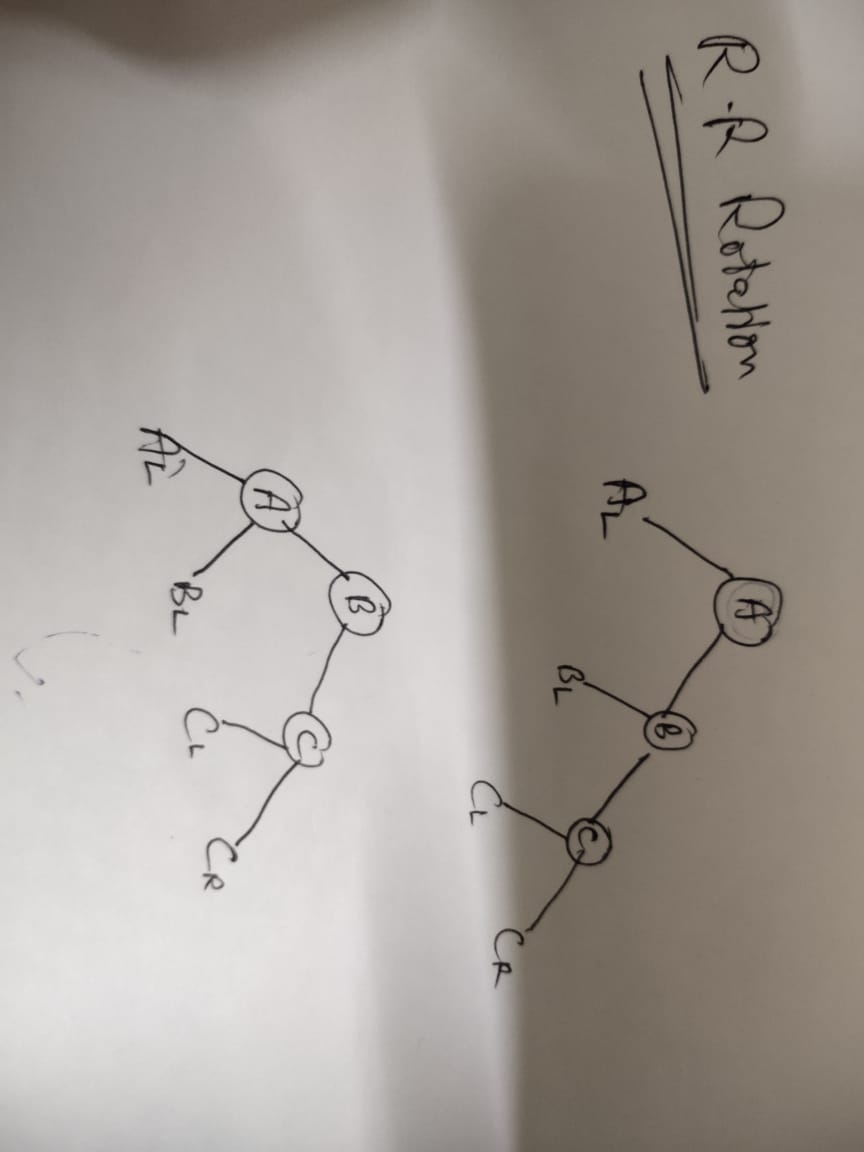 R.R Rotation
A
AL
B
BL
C
CL
CR
B
A
C
AL
BL
CL
CR